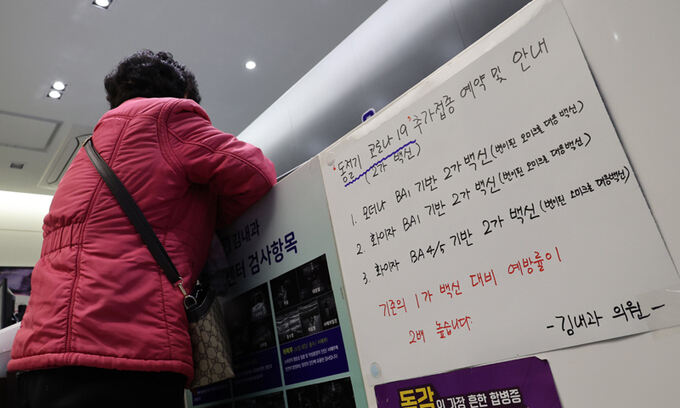 '동절기 코로나 19' 추가접종 예약 및 안내
(2가 백신)
1. 모더나 BA1 기반 2가 백신 (변이된 오미크론 대응 백신)
2. 화이자 BA1 기반 2가 백신 (변이된 오미크론 대응 백신)
3. 화이자 BA4/5 기반 2가 백신 (변이된 오미크론 대응백신)
기존의 1가 백신 대비 예방률이
2배 높습니다.
-김내과 의원-
김내과
센터 검사항목
독감의 가장 흔한 합병증